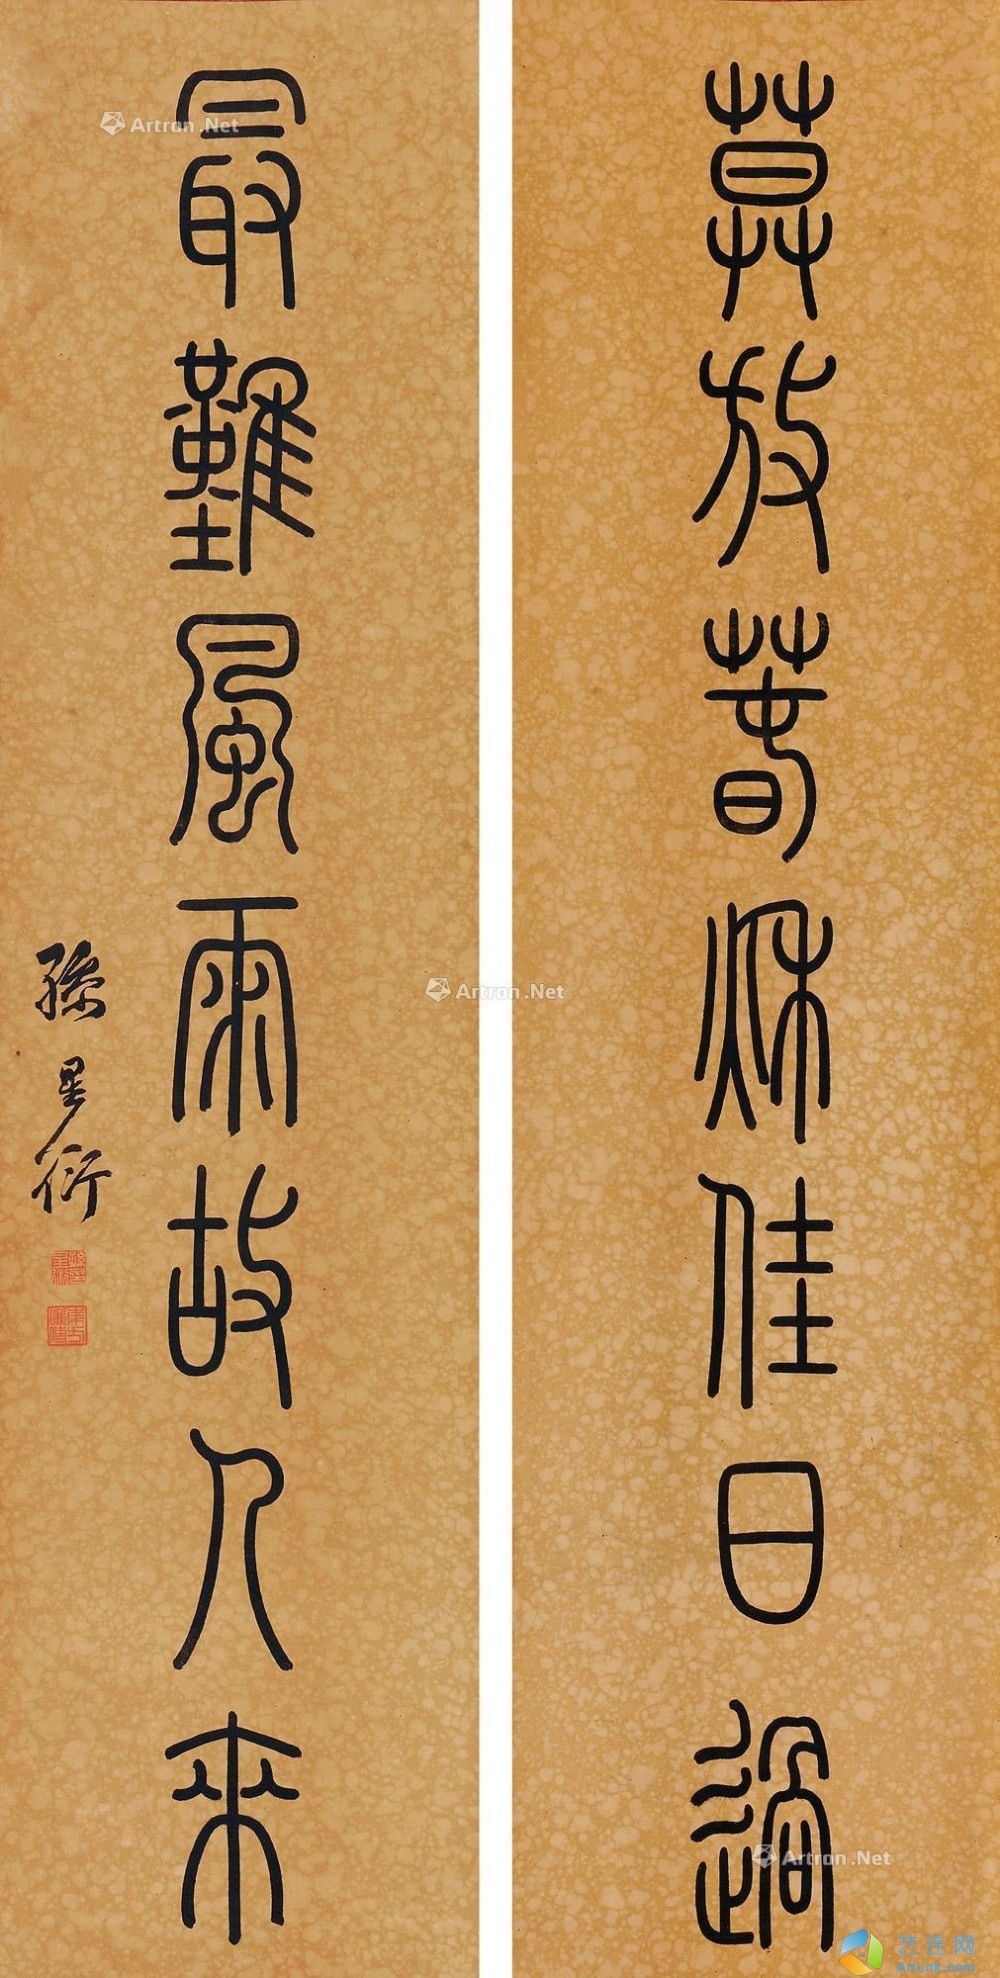 莫放萅秌佳日過
最難風雨故人来
孫星衍
Artron.Net
Artron.Net
Artron.Net
艺连网
ArtLnk.com